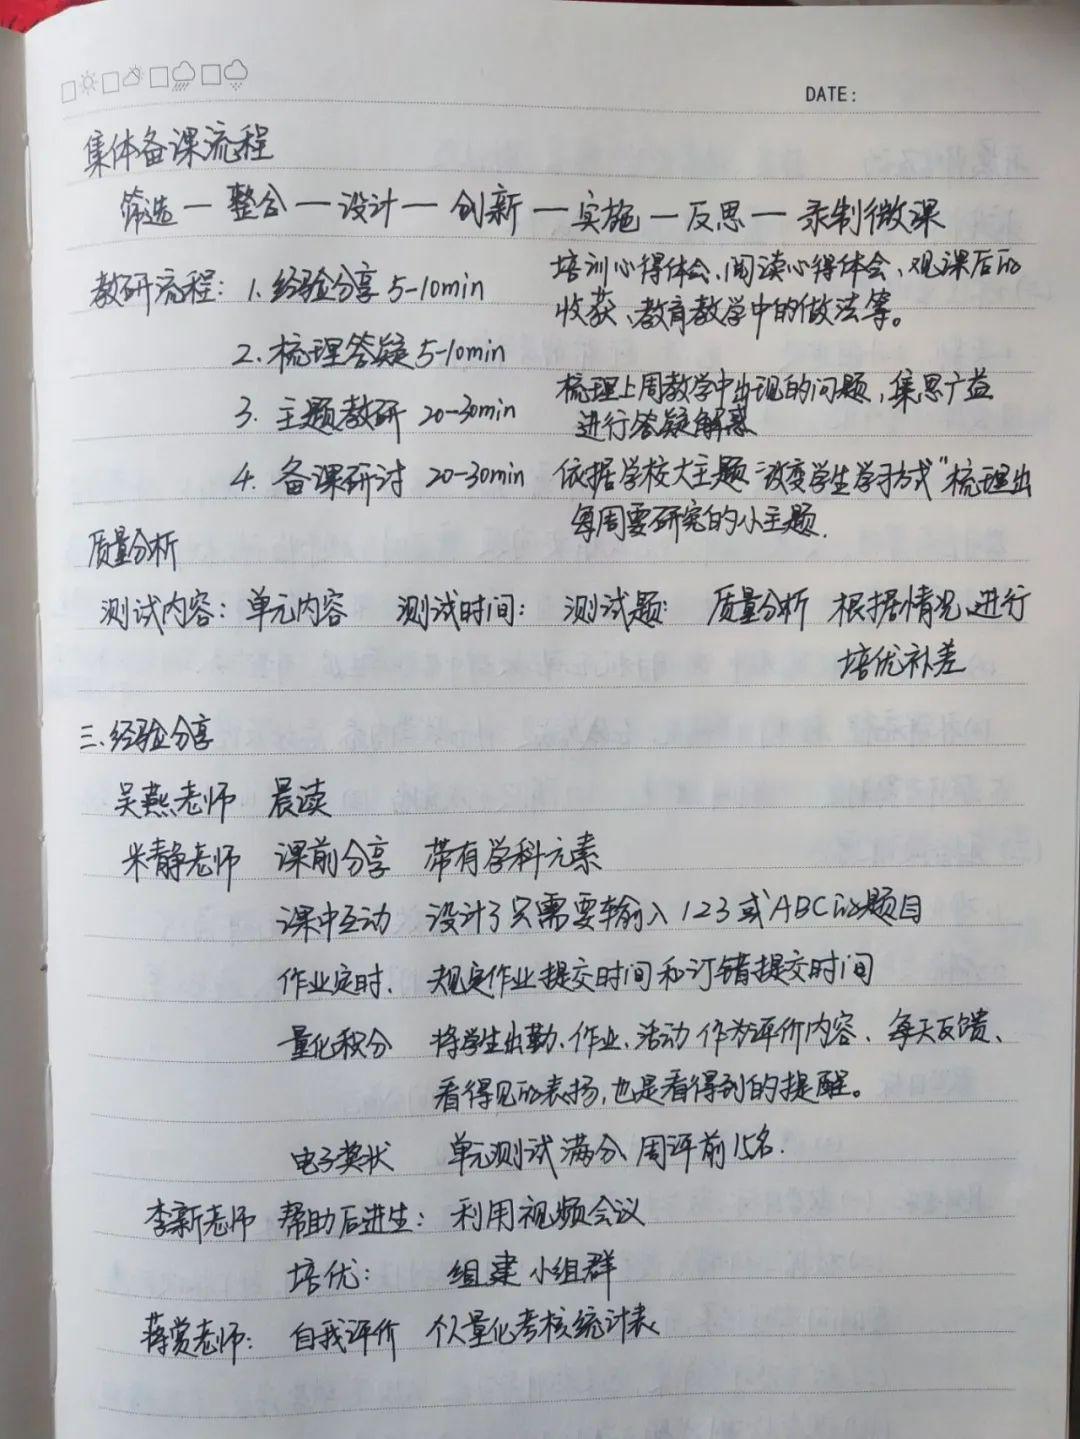 DATE:
集体备课流程
筛选 — 整合 — 设计 — 创新 — 实施 — 反思 — 录制微课
教研流程: 1. 经验分享 5-10min 培训心得体会、阅读心得体会、观课后的
收获、教育教学中的做法等。
2. 梳理答疑 5-10min
梳理上周教学中出现的问题,集思广益
3. 主题教研 20-30min 进行答疑解惑
4. 备课研讨 20-30min 依据学校大主题“改变学生学习方式”梳理出
每周要研究的小主题.
质量分析
测试内容: 单元内容 测试时间: 测试题: 质量分析 根据情况进行
培优补差
三、经验分享
吴燕老师 晨读
米静老师 课前分享 带有学科元素
课中互动 设计了只需要输入123或ABC的题目
作业定时、 规定作业提交时间和订错提交时间
量化积分 将学生出勤、作业、活动作为评价内容、每天反馈、
看得见的表扬,也是看得到的提醒。
电子奖状 单元测试满分 周评前15名.
李新老师 帮助后进生: 利用视频会议
培优: 组建小组群
蒋赏老师: 自我评价 个人量化考核统计表